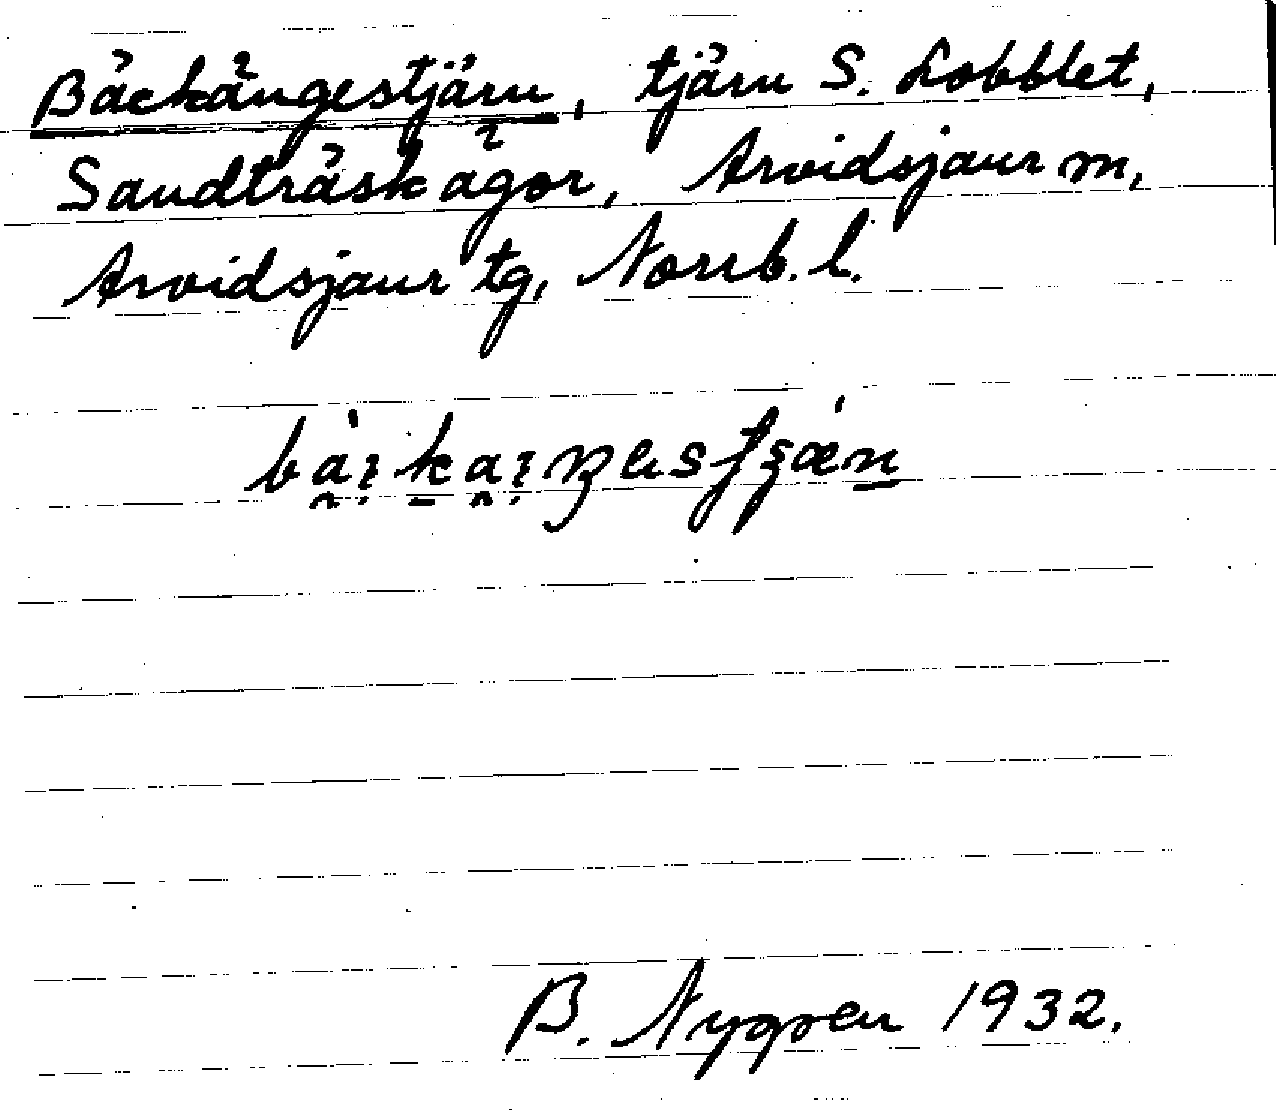 Bäckängestjärn, tjärn S. Lobblet,
Sandträskägor, Arvidsjaur m,
Arvidsjaur tg, Norrb. l.
B. Nygren 1932.